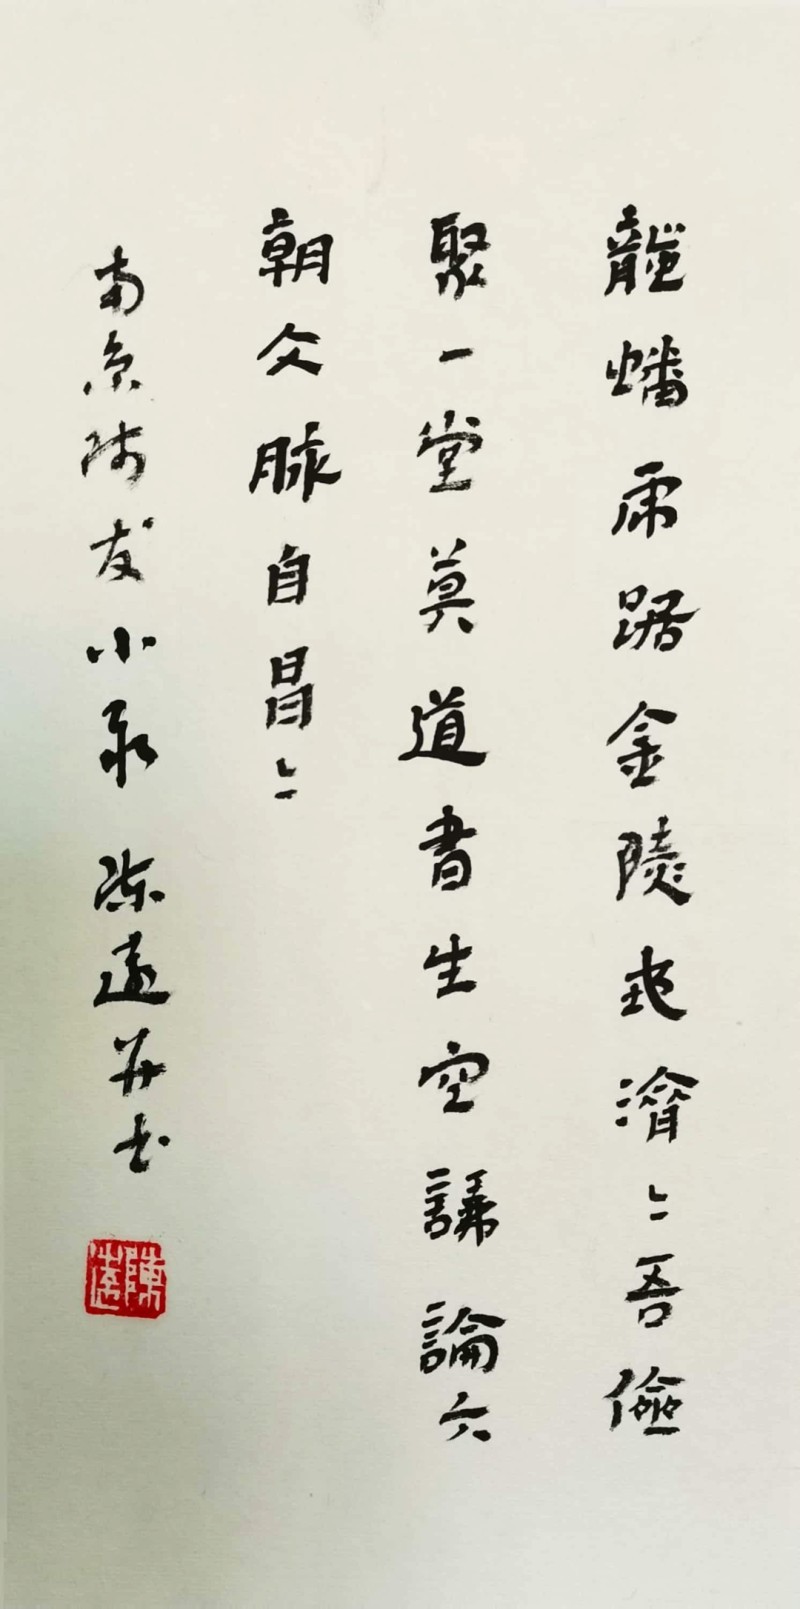 龍蟠虎踞金陵地濟〻吾儉
聚一堂莫道書生空議論六
朝文脈自昌〻
南京師友小聚 陳遠并書
陳遠